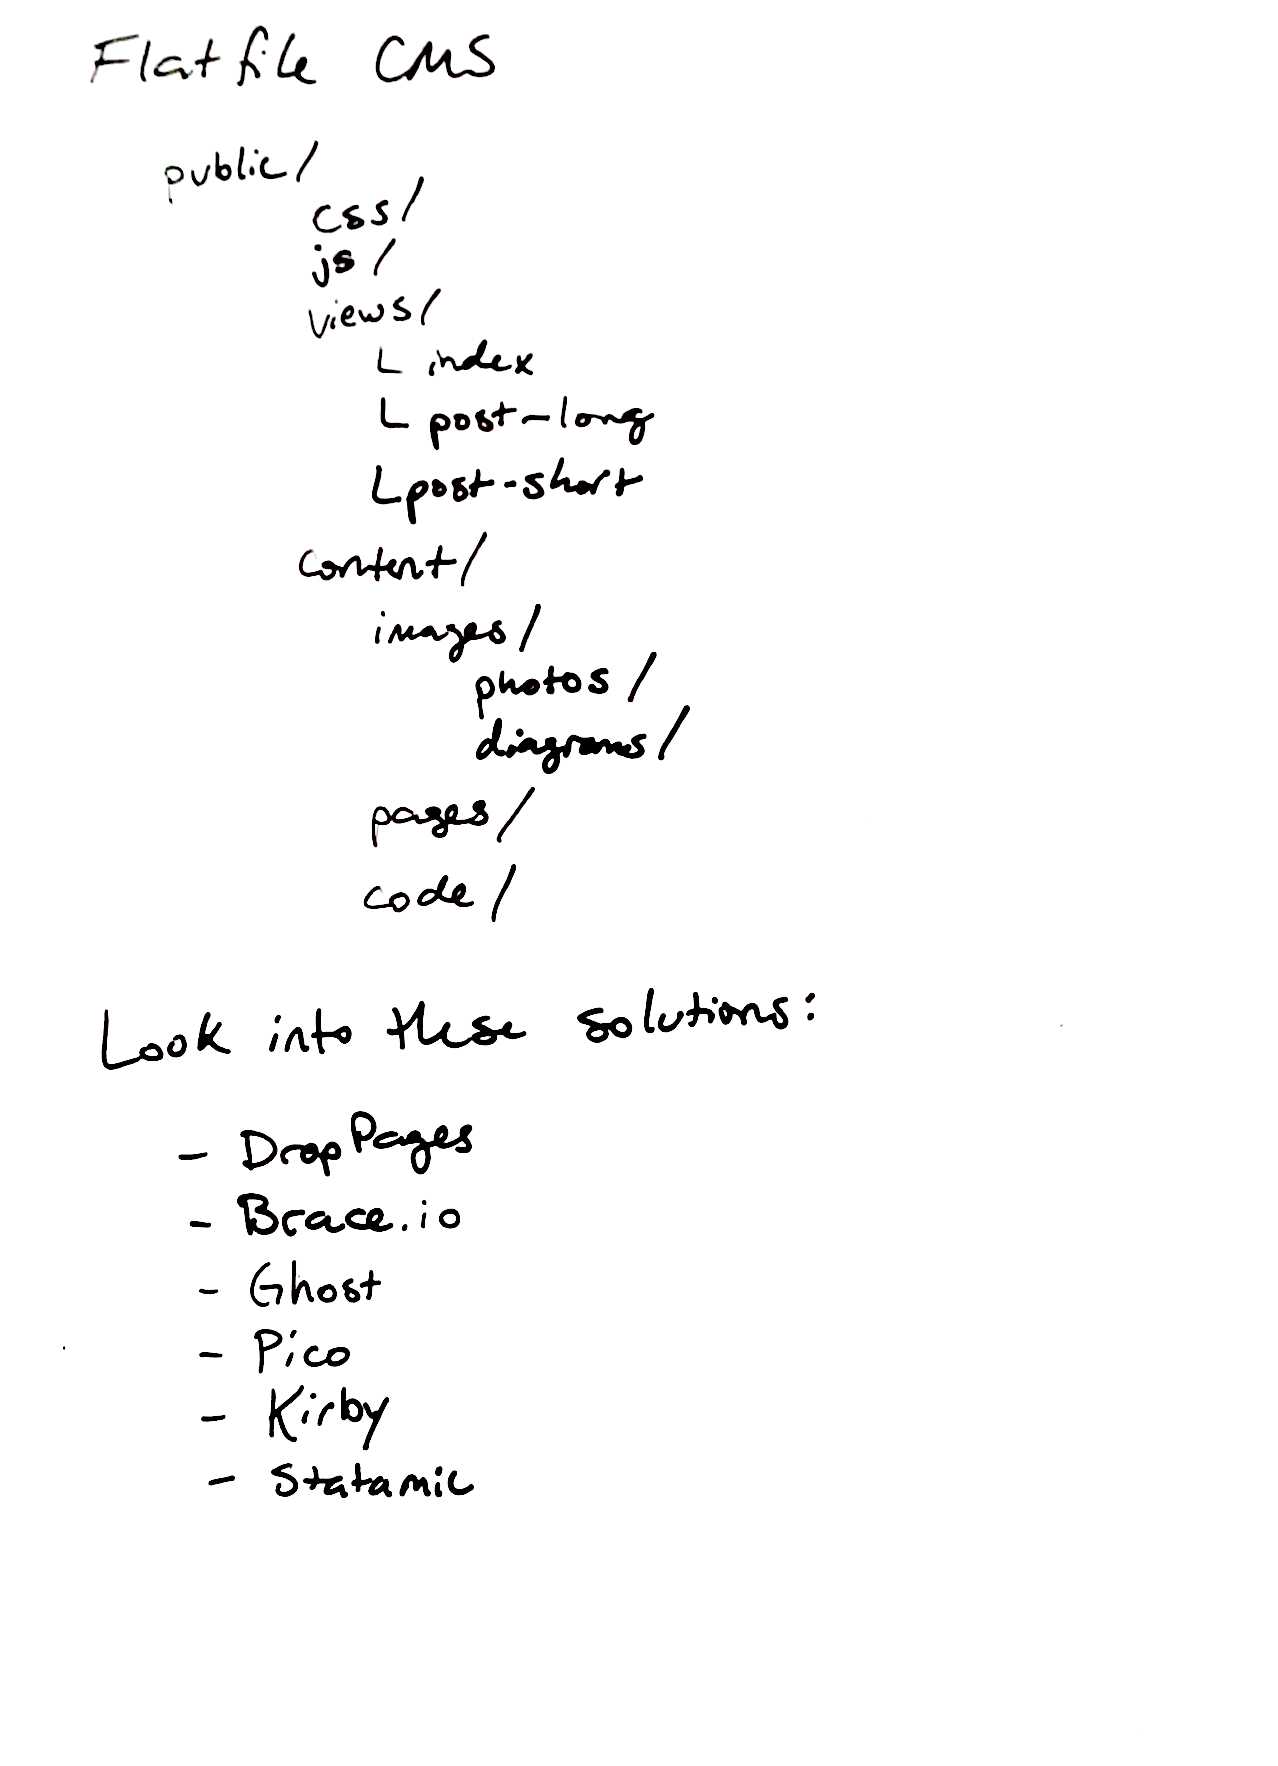 Flatfile CMS
public/
css/
js/
views/
L index
L post-long
L post-short
content/
images/
photos/
diagrams/
pages/
code/
Look into these solutions:
- DropPages
- Brace.io
- Ghost
- Pico
- Kirby
- Statamic